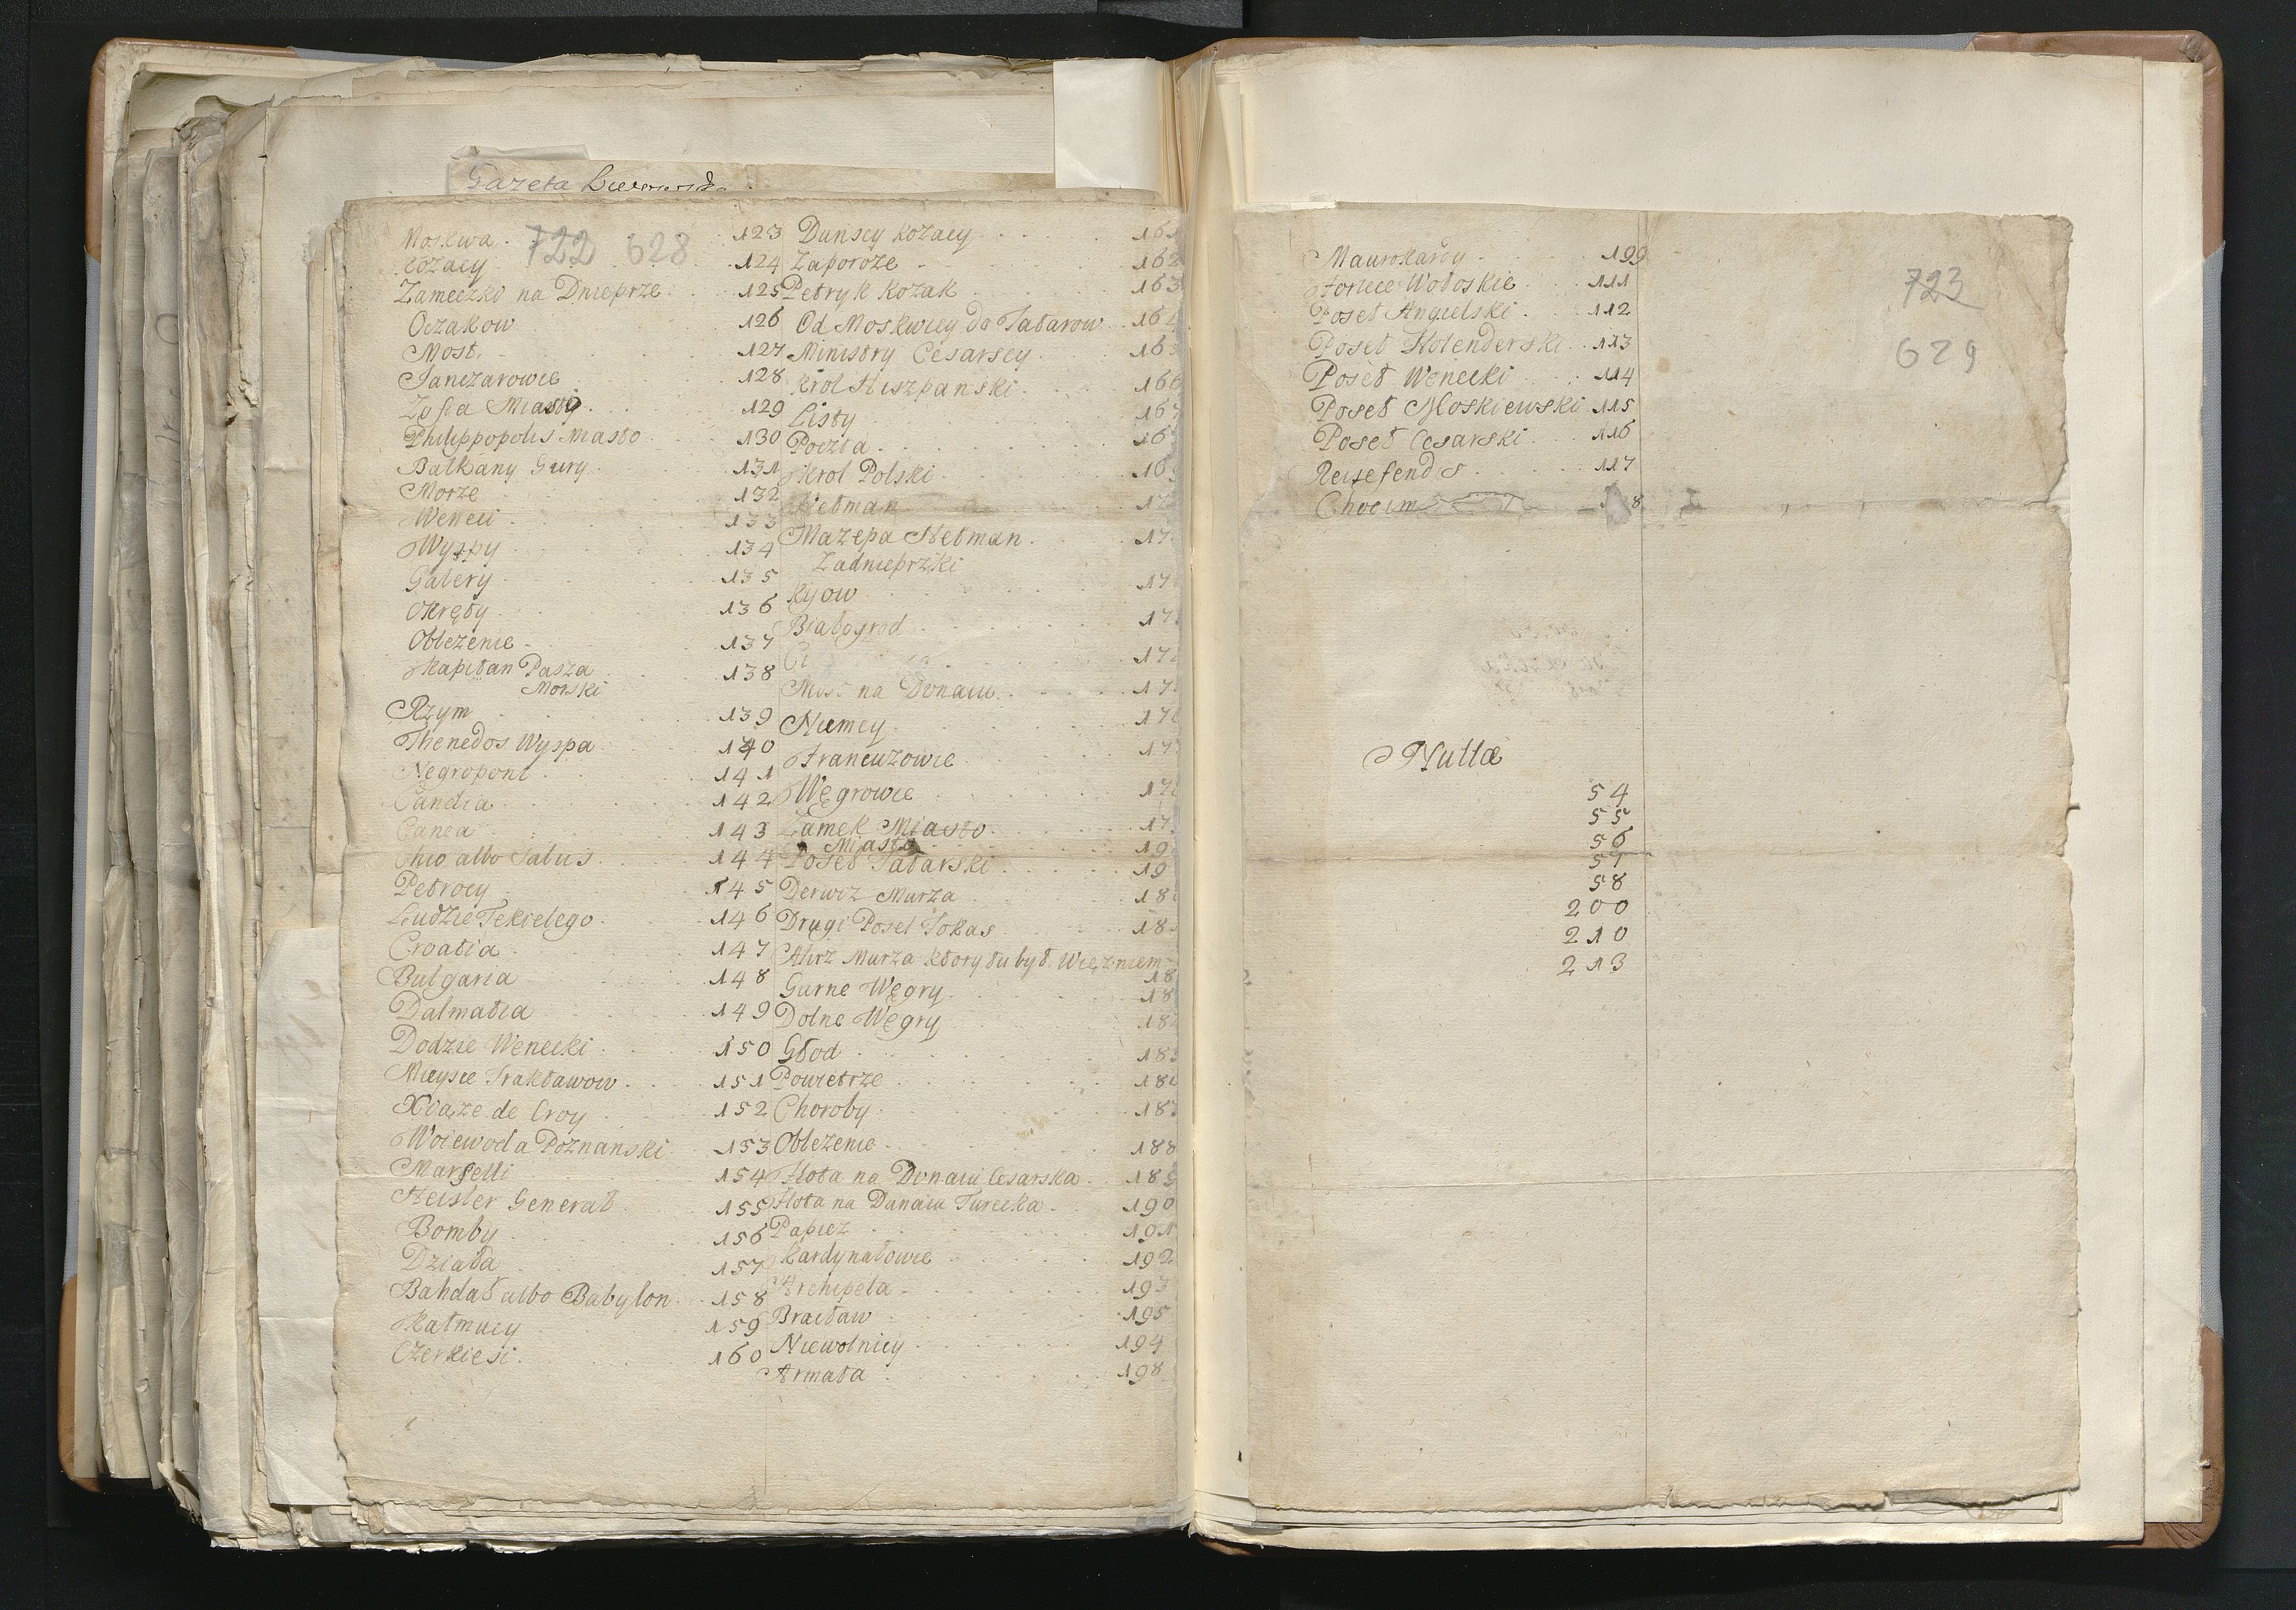 Gazeta Lwowska
722 628
Moskwa 123
Kozacy 124
Zameczki na Dnieprze 125
Oczakow 126
Most 127
Janczarowie 128
Zofia Miasto 129
Philippopolis Miasto 130
Balkany Gury 131
Morze 132
Weneci 133
Wyspy 134
Galery 135
Okręty 136
Oblezenie 137
Kapitan Pasza 138
Morski
Rzym 139
Thenedos Wyspa 140
Negropont 141
Candia 142
Canea 143
Chio albo 144
Petrocy 145
Ludzie Tekielego 146
Croatia 147
Bulgaria 148
Dalmatia 149
Dodzie Wenecki 150
Mieysce Traktatow 151
Xiąze de Croy 152
Woiewoda Poznanski 153
Marselli 154
Heisler Generał 155
Bomby 156
Działa 157
Bahdad albo Babylon 158
Kałmucy 159
Czerkiesi 160
Dunscy Kozacy 161
Zaporoze 162
Petryk Kozak 163
Od Moskwicy do Tatarow
Ministry Cesarscy
Krol Hiszpanski 166
Listy
Poczta
Krol Polski
Hetman
Mazepa Hetman
Zadnieprzki
Kyow
Białogrod
Most na Donaiu
Niemcy
Francuzowie
Węgrowie
Zamek Miasto
Miasto
Poseł Tatarski
Derwiz Murza
Drugi Posel Tokas
Murza ktory tu był Więzniem
Gurne Węgry
Dolne Węgry
Głod
Powietrze
Choroby
Oblezenie 188
Flota na Donaiu Cesarska 189
Flota na Dunaiu Turecka 190
Papiez 191
Kardynałowie 192
Archipela 193
Bracław 195
Niewolnicy 194
Armata 198
723
629
Maurokardy 199
Fortece Wołoskie 111
Poseł Angielski 112
Poseł Holenderski 113
Poseł Wenecki 114
Poseł Moskiewski 115
Poseł Cesarski 116
Reisefendi 117
Chocim
Nullæ
54
55
56
57
58
200
210
213